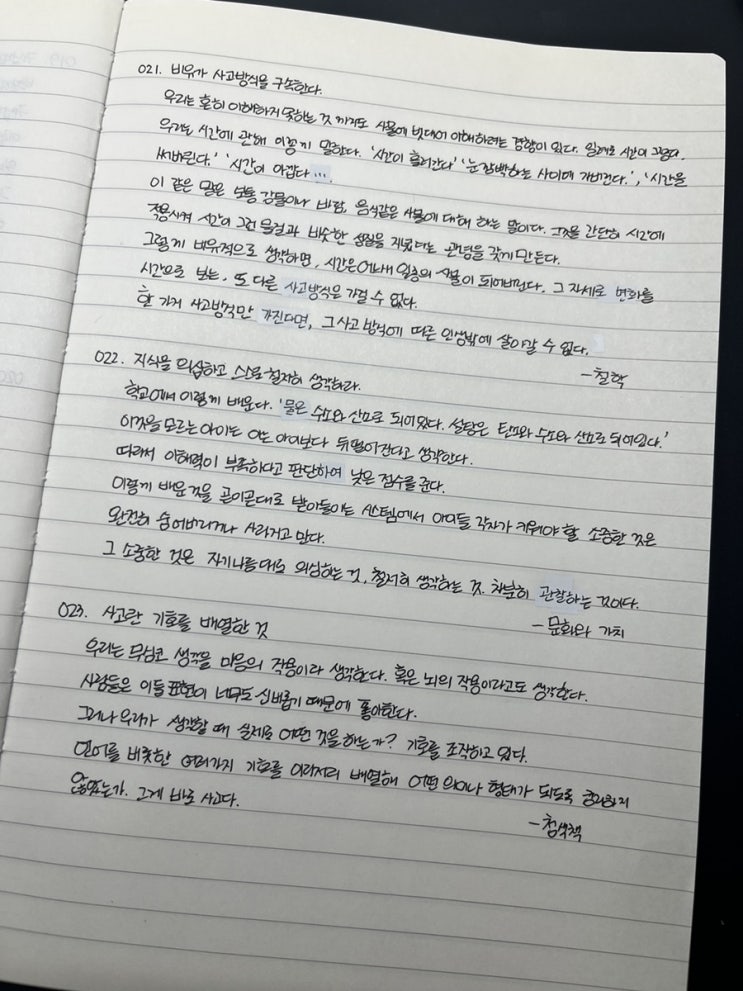 021. 비유가 사고방식을 구속한다.
우리는 흔히 이해하지 못하는 것 까지도 사물에 빗대어 이해하려는 경향이 있다. 일례로 시간이 그렇다.
우리는 시간에 관해 이렇게 말한다. '시간이 흘러간다' '눈 깜박하는 사이에 가버린다.', '시간을
써버린다.' '시간이 아깝다 ….
이 같은 말은 보통 강물이나 바람, 음식같은 사물에 대해 하는 말이다. 그것을 간단히 시간에
적용시켜 시간이 그런 물결과 비슷한 성질을 지녔다는 관념을 갖게 만든다.
그렇게 비유적으로 생각하면, 시간은 어느새 일종의 사물이 되어버린다. 그 자체로 변화를
시간으로 보는, 또 다른 사고방식은 가질 수 없다.
한 가지 사고방식만 가진다면, 그 사고 방식에 따른 인생밖에 살아갈 수 없다.
- 철학
022. 지식을 의심하고 스스로 철저히 생각하라.
학교에서 이렇게 배운다. '물은 수소와 산소로 되어있다. 설탕은 탄소와 수소와 산소로 되어있다.'
이것을 모르는 아이는 아는 아이보다 뒤떨어진다고 생각한다.
따라서 이해력이 부족하다고 판단하여 낮은 점수를 준다.
이렇게 배운것을 곧이곧대로 받아들이는 시스템에서 아이들 각자가 키워야 할 소중한 것은
완전히 숨어버리거나 사라지고 만다.
그 소중한 것은 자기 나름대로 의심하는 것, 철저히 생각하는 것. 차분히 관찰하는 것이다.
- 문화와 가치
023. 사고란 기호를 배열한 것
우리는 무심코 생각을 마음의 작용이라 생각한다. 혹은 뇌의 작용이라고도 생각한다.
사람들은 이들 표현이 너무도 신비롭기 때문에 좋아한다.
그러나 우리가 생각할 때 실제로 어떤 것을 하는가? 기호를 조작하고 있다.
언어를 비롯한 여러가지 기호를 이리저리 배열해 어떤 의미나 형태가 되도록 궁리하지
않았는가. 그게 바로 사고다.
- 청색책